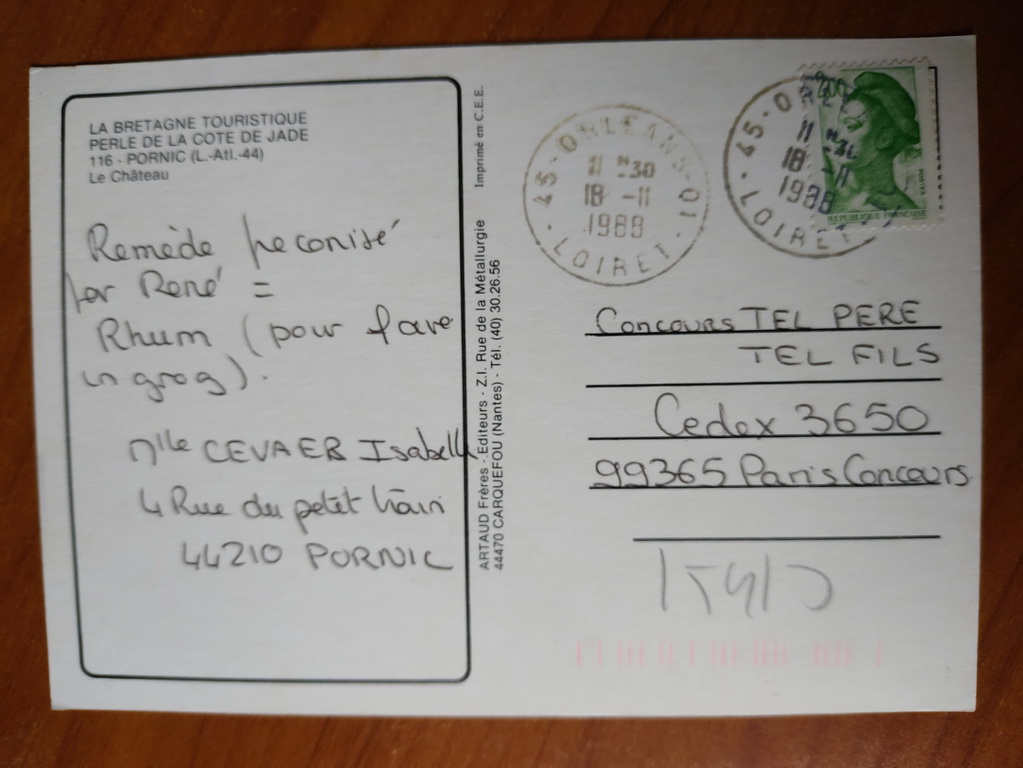 LA BRETAGNE TOURISTIQUE
PERLE DE LA COTE DE JADE
116 - PORNIC (L.-Atl.-44)
Le Château
Remède peconisé
par René =
Rhum (pour faire
un grog).
Mlle CEVAER Isabelle
4 Rue du petit train
44210 PORNIC
Imprimé en C.E.E.
ARTAUD Frères - Editeurs - Z.I. Rue de la Métallurgie
44470 CARQUEFOU (Nantes) - Tél. (40) 30.26.56
45 - ORLEANS - 01
11 H 30
18 - 11
1988
LOIRET
45 - ORLE
11 H 30
18 - 11
1988
LOIRET
2,00
POSTES
REPUBLIQUE FRANÇAISE
Concours TEL PERE
TEL FILS
Cedex 3650
99365 Paris Concours